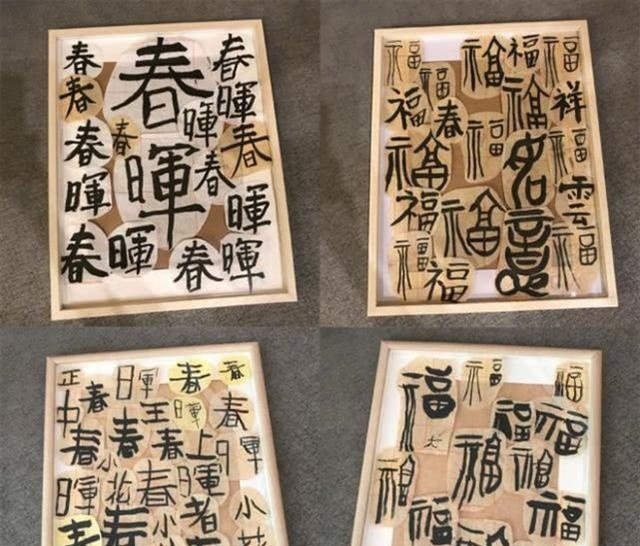 春 春 春
春 暉
暉
春 春 春
暉 春
暉 暉
春 暉 春 暉
福 福 福 福
福 福 福 祥
春
福 福 如意
雲
福 福 福
福 福 福
正 春 日暉 春 春
中 王 暉 春
春 春 春 上 日軍
暉 小花 春 暉
春 春 小 者 小花
福 福 福
大 福 福
福 福 福
福 福 福